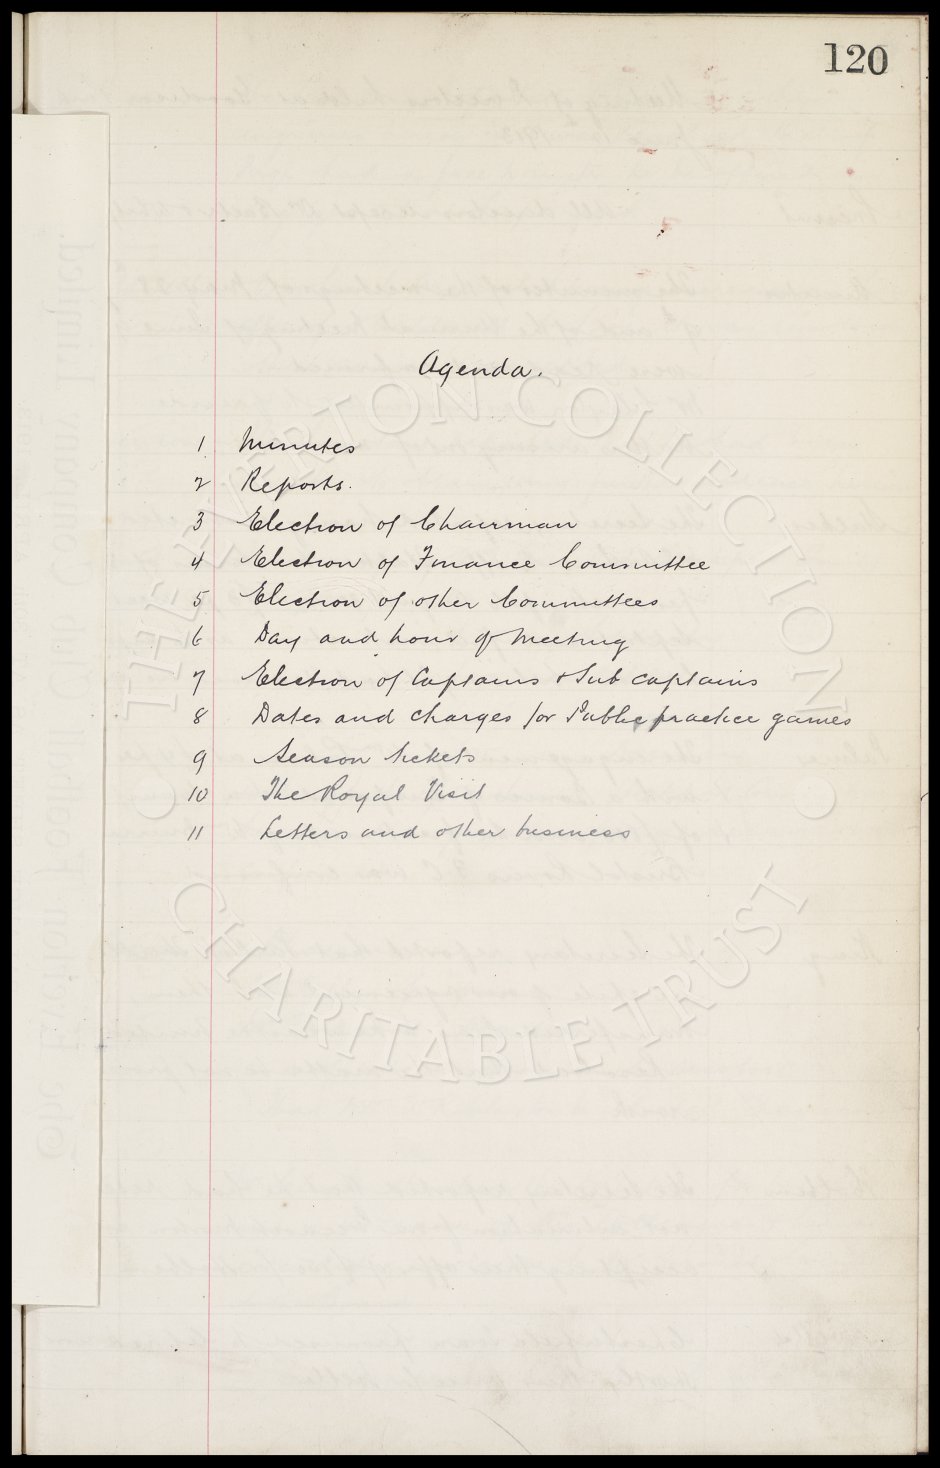 120
Agenda.
1 Minutes
2 Reports.
3 Election of Chairman
4 Election of Finance Committee
5 Election of other Committees
6 Day and hour of Meeting
7 Election of Captains & Sub captains
8 Dates and charges for Public practice games
9 Season tickets
10 The Royal Visit
11 Letters and other business
THE EVERTON COLLECTION
CHARITABLE TRUST